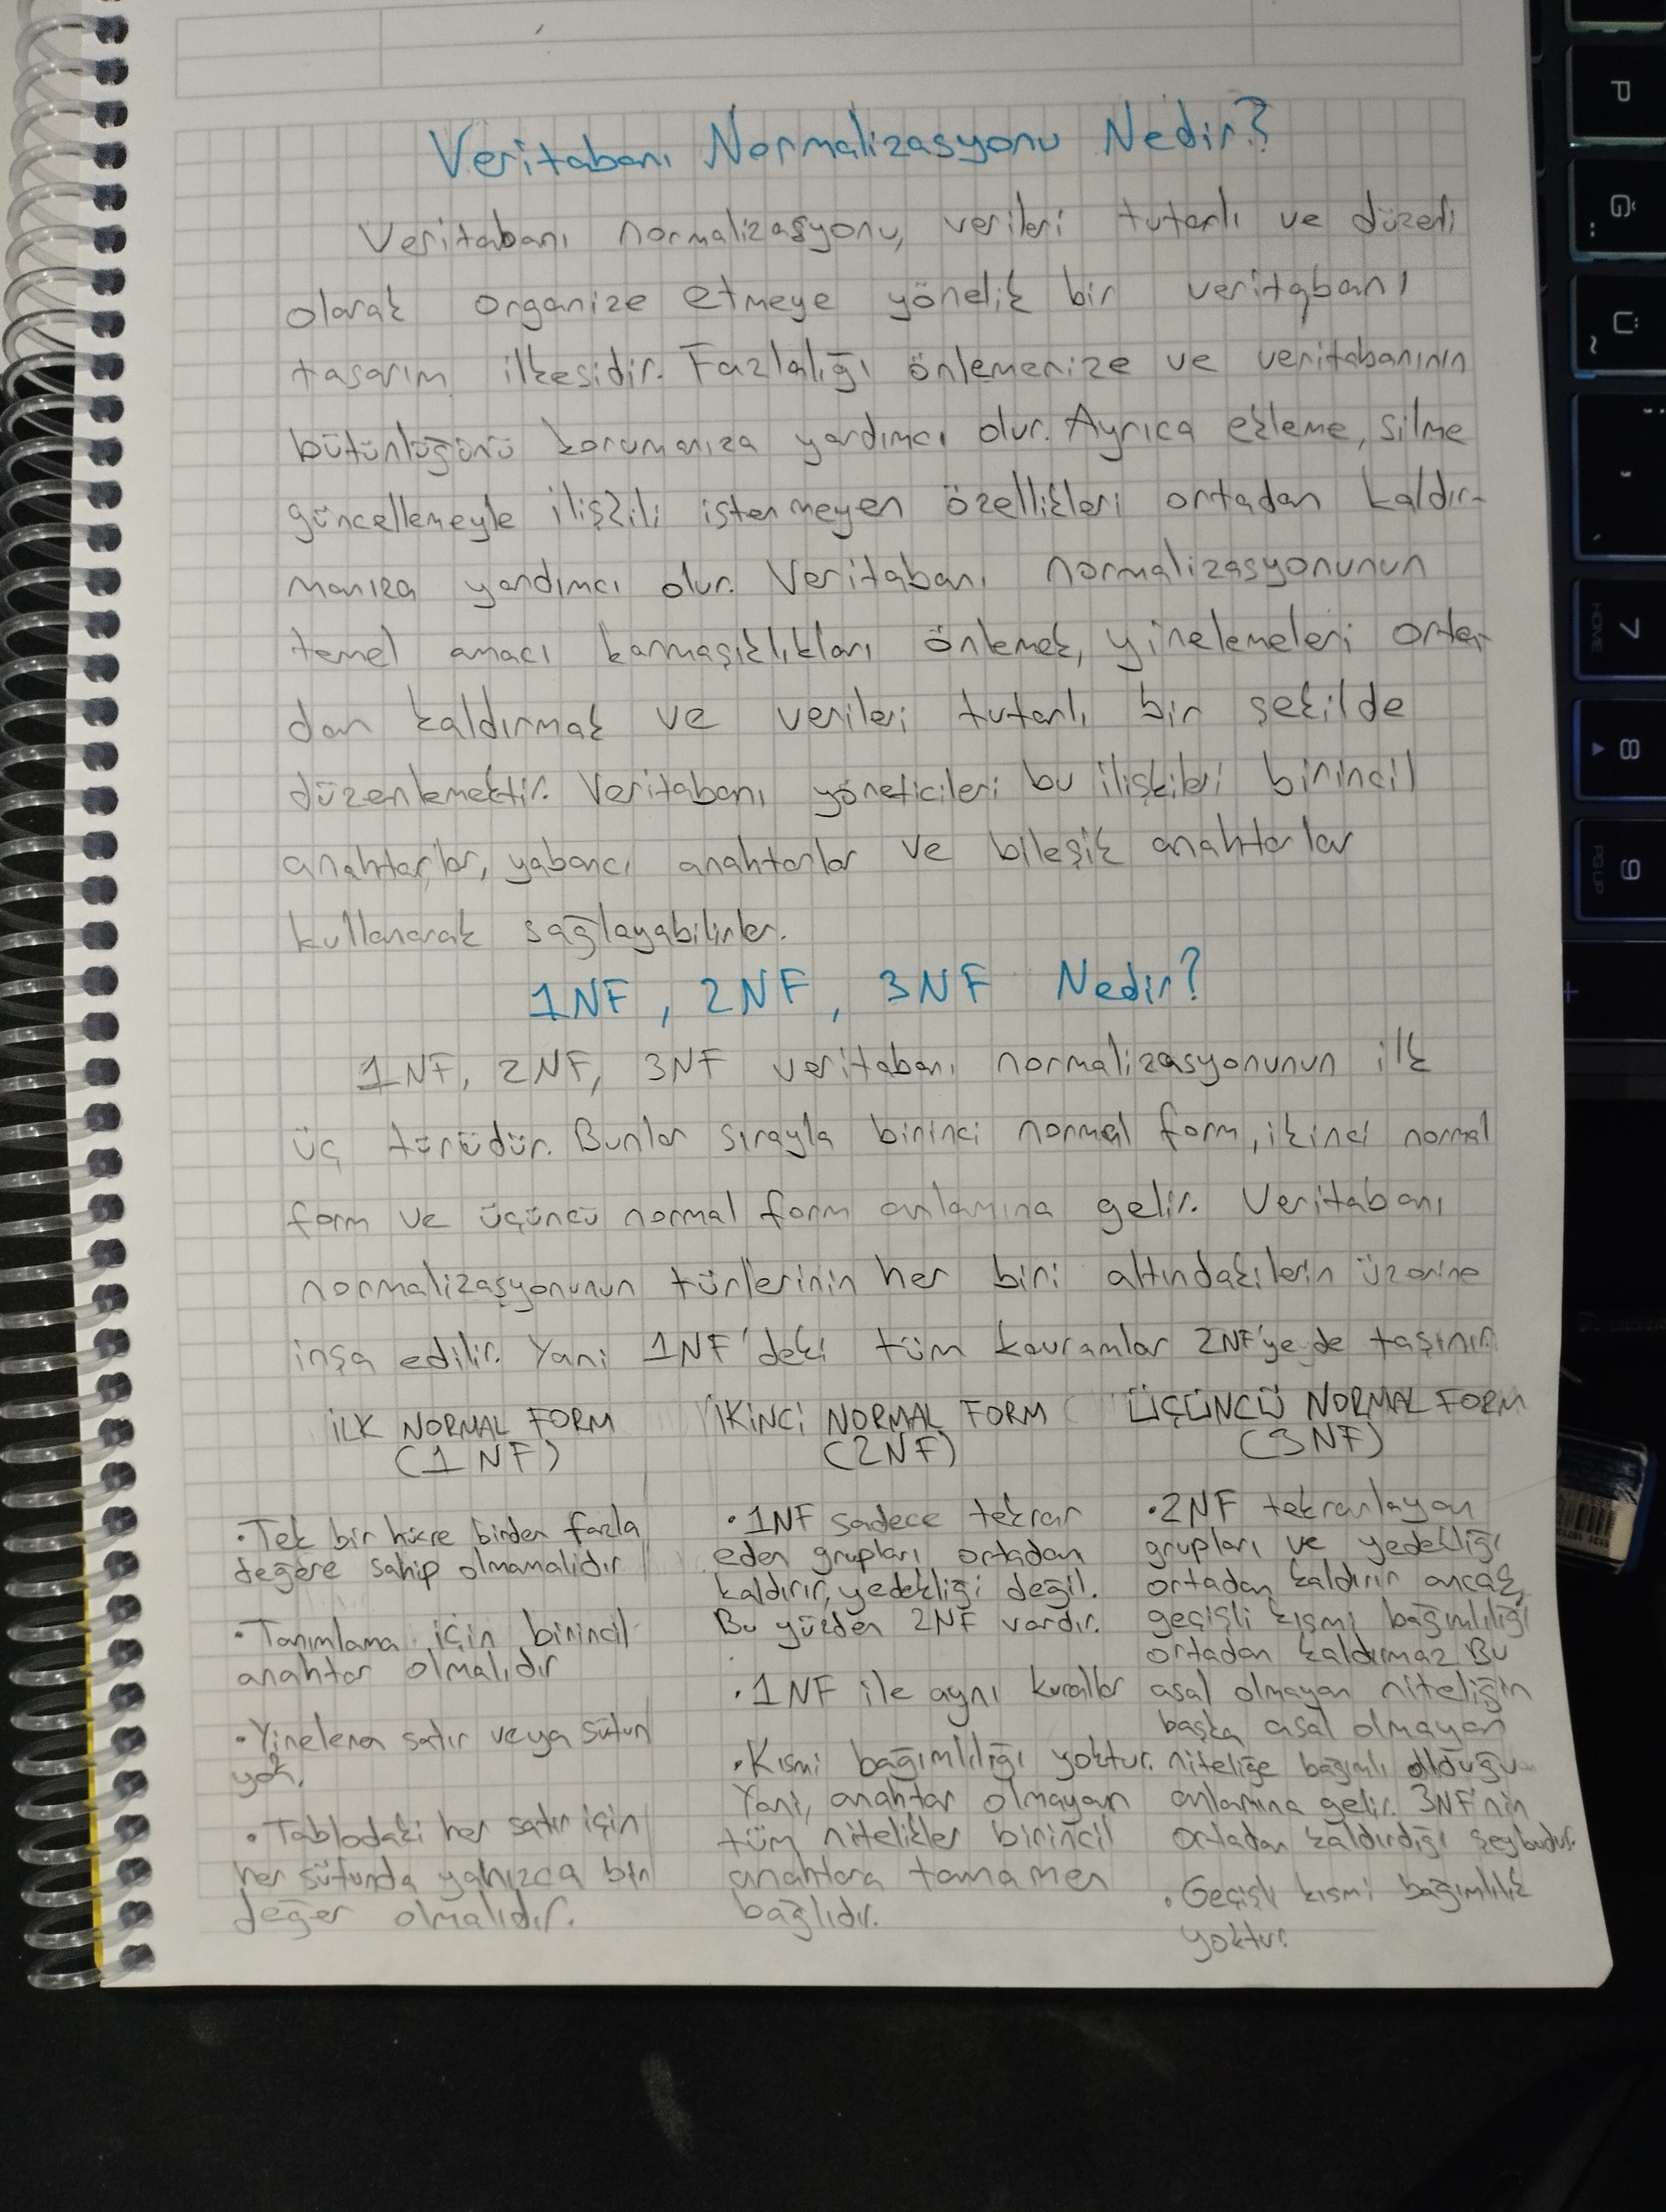 Veritabanı Normalizasyonu Nedir?
Veritabanı normalizasyonu, verileri tutarlı ve düzenli
olarak organize etmeye yönelik bir veritabanı
tasarım ilkesidir. Fazlalığı önlemenize ve veritabanının
bütünlüğünü korumanıza yardımcı olur. Ayrıca ekleme, silme
güncellemeyle ilişkili istenmeyen özellikleri ortadan kaldır-
manıza yardımcı olur. Veritabanı normalizasyonunun
temel amacı karmaşıklıkları önlemek, yinelemeleri orta-
dan kaldırmak ve verileri tutarlı bir şekilde
düzenlemektir. Veritabanı yöneticileri bu ilişkileri birincil
anahtarlar, yabancı anahtarlar ve bileşik anahtarlar
kullanarak sağlayabilirler.
1NF, 2NF, 3NF Nedir?
1NF, 2NF, 3NF veritabanı normalizasyonunun ilk
üç türüdür. Bunlar sırayla birinci normal form, ikinci normal
form ve üçüncü normal form anlamına gelir. Veritabanı
normalizasyonunun türlerinin her biri altındakilerin üzerine
inşa edilir. Yani 1NF'deki tüm kavramlar 2NF'ye de taşınır.
İLK NORMAL FORM
(1NF)
• Tek bir hücre birden fazla
değere sahip olmamalıdır
• Tanımlama için birincil
anahtar olmalıdır
• Yinelenen satır veya sütun
yok.
• Tablodaki her satır için
her sütunda yalnızca bir
değer olmalıdır.
İKİNCİ NORMAL FORM
(2NF)
• 1NF sadece tekrar
eden grupları ortadan
kaldırır, yedekliği değil.
Bu yüzden 2NF vardır.
• 1NF ile aynı kurallar
• Kısmi bağımlılığı yoktur.
Yani, anahtar olmayan
tüm nitelikler birincil
anahtara tamamen
bağlıdır.
ÜÇÜNCÜ NORMAL FORM
(3NF)
• 2NF tekrarlayan
grupları ve yedekliği
ortadan kaldırır ancak,
geçişli kısmi bağımlılığı
ortadan kaldırmaz Bu
asal olmayan niteliğin
başka asal olmayan
niteliğe bağımlı olduğu
anlamına gelir. 3NF'nin
ortadan kaldırdığı şey budur.
• Geçişli kısmi bağımlılık
yoktur.
P
Ğ
Ü
7
HOME
8
9
PG UP